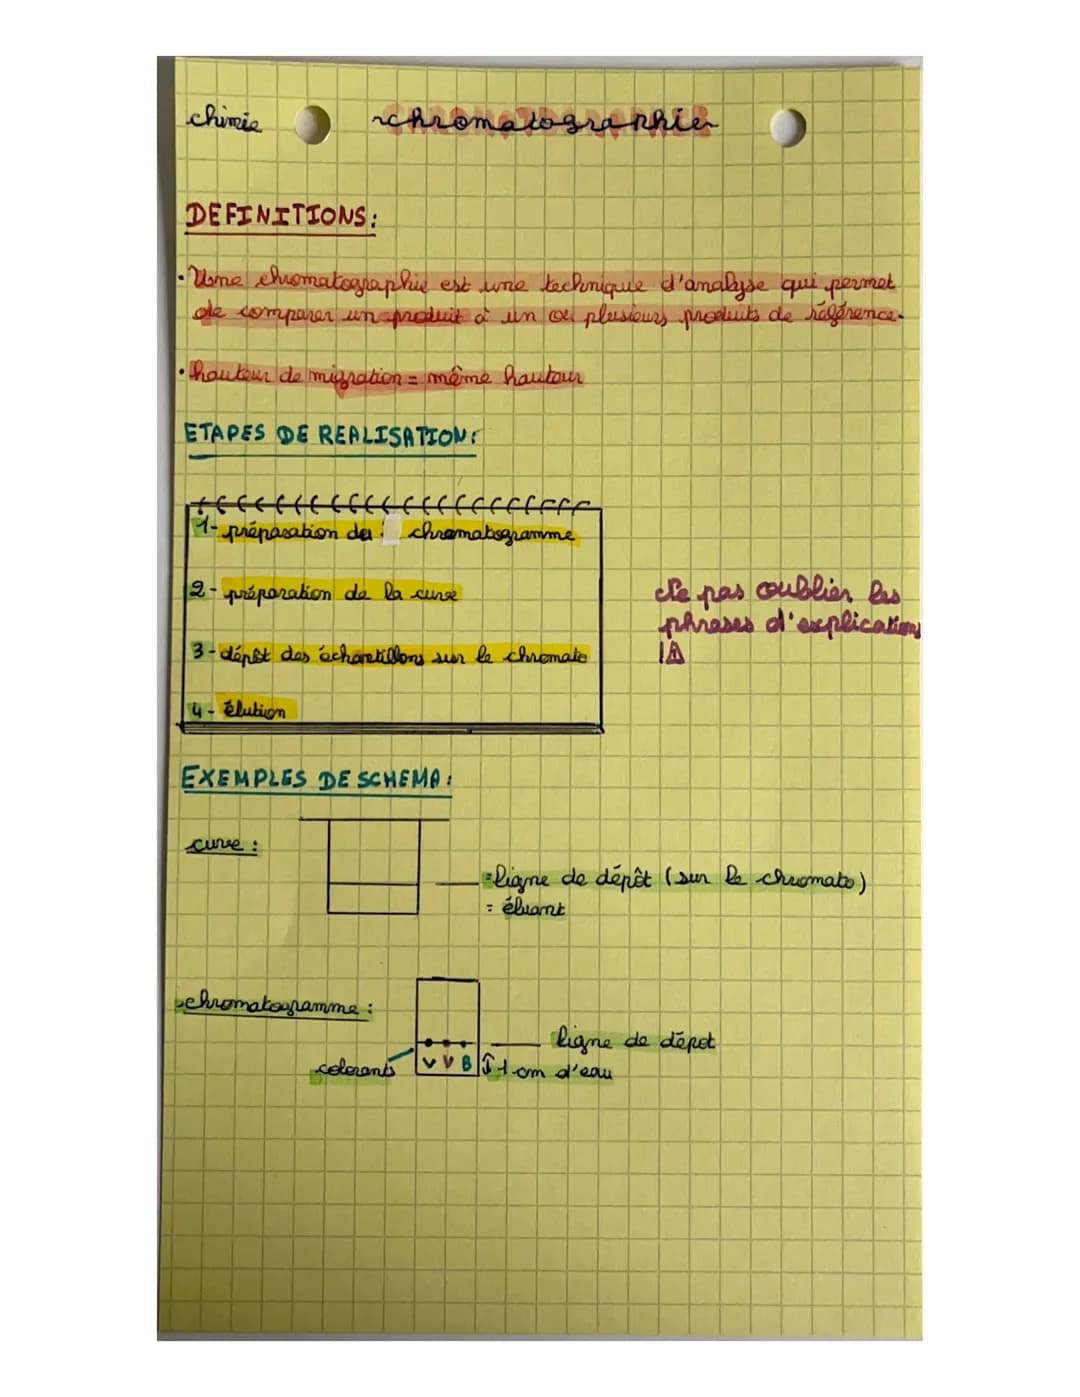 chimie
chromatographie
DEFINITIONS:
• Une chromatographie est une technique d'analyse qui permet
de comparer un produit à un ou plusieurs produits de référence.
• hauteur de migration = même hauteur
ETAPES DE REALISATION:
1- préparation du chromatogramme
2- préparation de la cuve
3- dépôt des échantillons sur le chromato
4- élution
Ne pas oublier les
phrases d'explications
!⚠
EXEMPLES DE SCHEMA:
cuve :
=ligne de dépôt (sur le chromato)
= éluant
chromatogramme :
ligne de dépot
colorants
V V B
↕1 cm d'eau